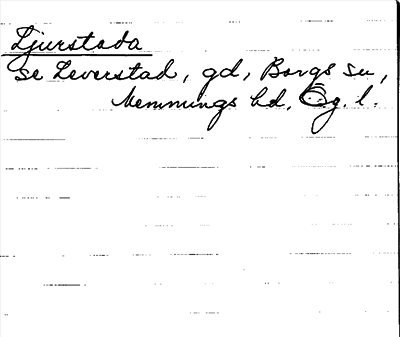 Ljurstada
se Leverstad, gd, Borgs sn,
Memmings hd, Ög. l.